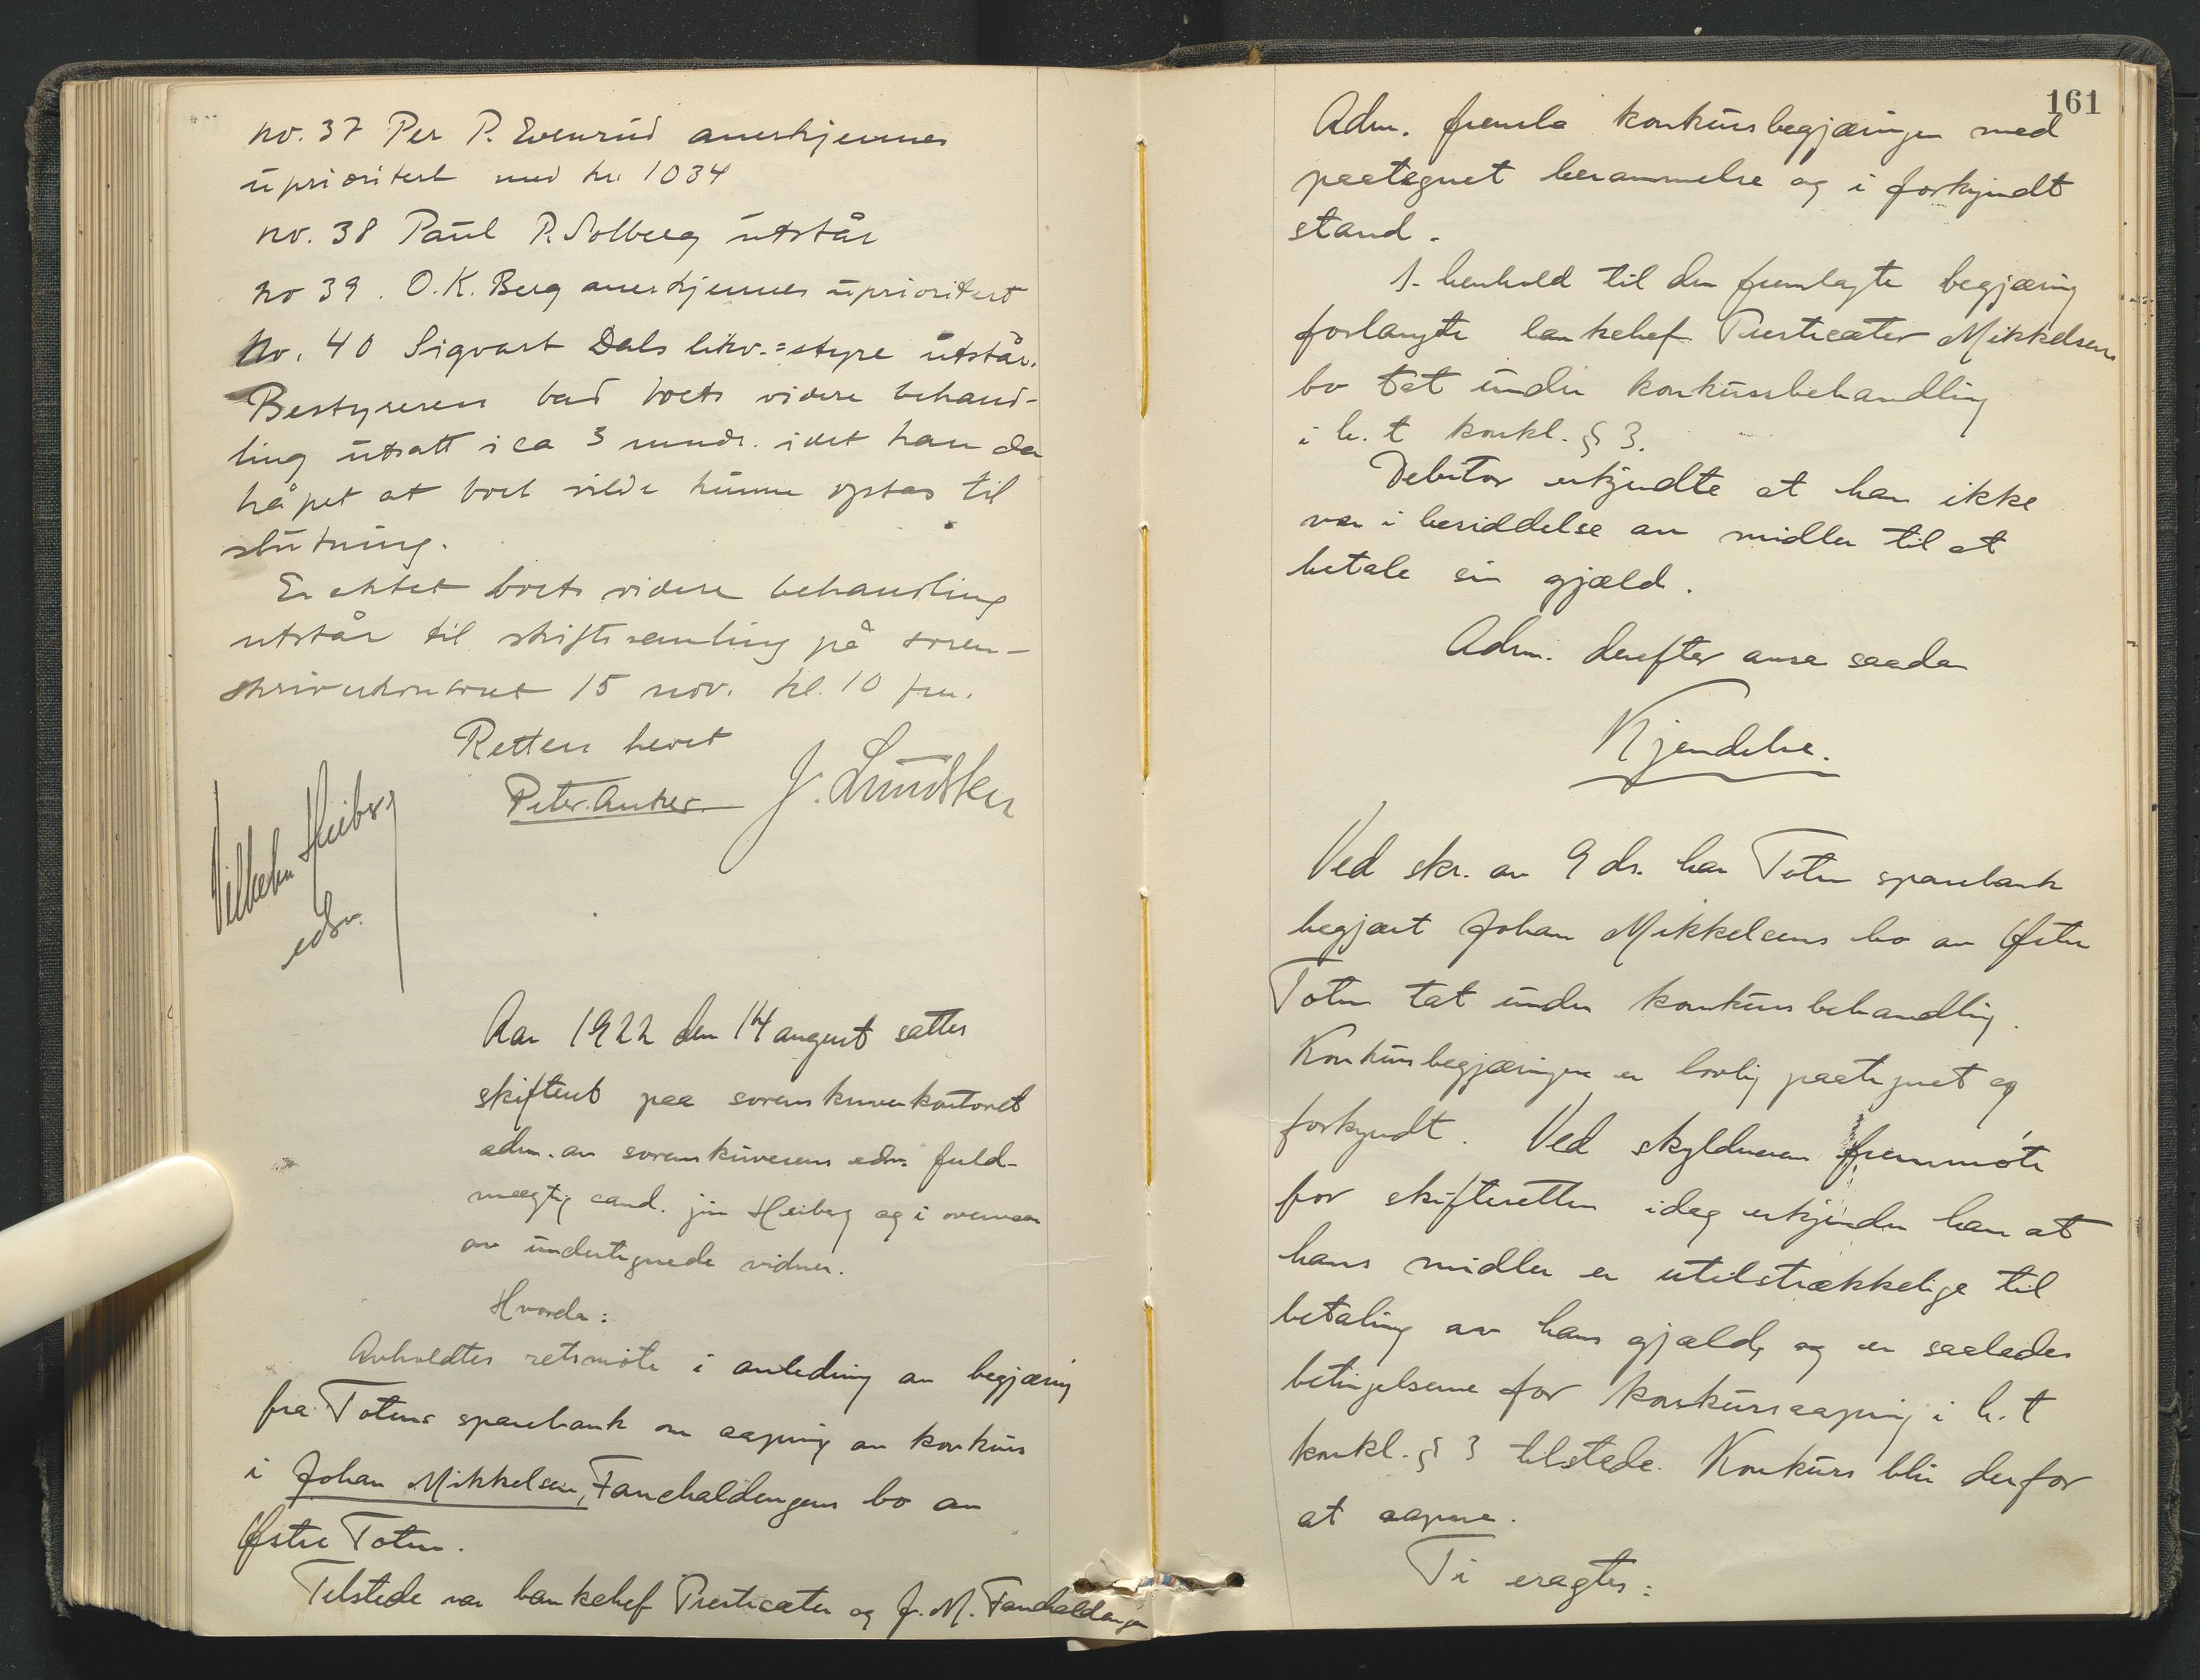 no. 37 Per P. Evenrud anerkjennes
uprioritert med kr. 1034
no. 38 Paul P. Solberg utstår
no 39. O. K. Berg anerkjennes uprioritert
No. 40 Sigvart Dals likv.=styre utstår.
Bestyreren bad boets videre behand-
ling utsatt i ca 3 mndr. idet han da
håpet at boet vilde kunne optas til
slutning.
Er aktet boets videre behandling
utstår til skiftesamling på soren-
skriverkontoret 15 nov. kl. 10 fm.
Retten hevet
Peter Anker J. Lundsten
Vilhelm Heiberg
edsv.
Aar 1922 den 14 august sattes
skifteret paa sorenskriverkontoret
adm. av sorenskriverens edsv. fuld-
mægtig cand. jur Heiberg og i overvær
av undertegnede vidner.
Hvorda:
Avholdtes retsmöte i anledning av begjæring
fra Totens sparebank om aapning av konkurs
i Johan Mikkelsen, Fanehaldengens bo av
Østre Toten.
Tilstede var bankchef Presticæter og J. M. Fanehaldengen
161
Adm. fremla konkursbegjæringen med
paategnet berammelse og i forkyndt
stand.
I henhold til den fremlagte begjæring
forlangte bankchef Presticæter Mikkelsens
bo tat under konkursbehandling
i h. t konkl. § 3.
Debitor erkjendte at han ikke
var i besiddelse av midler til at
betale sin gjæld.
Adm. derefter avsa saadan
Kjendelse.
Ved skr. av 9 ds. har Toten sparebank
begjært Johan Mikkelsens bo av Østre
Toten tat under konkursbehandling.
Konkursbegjæringen er lovlig paategnet og
forkyndt. Ved skyldneren fremmöte
for skifteretten idag erkjender han at
hans midler er utilstrækkelige til
betaling av hans gjæld, og er saaledes
betingelserne for konkursaapning i h. t
konkl. § 3 tilstede. Konkurs blir derfor
at aapne.
Ti eragtes: